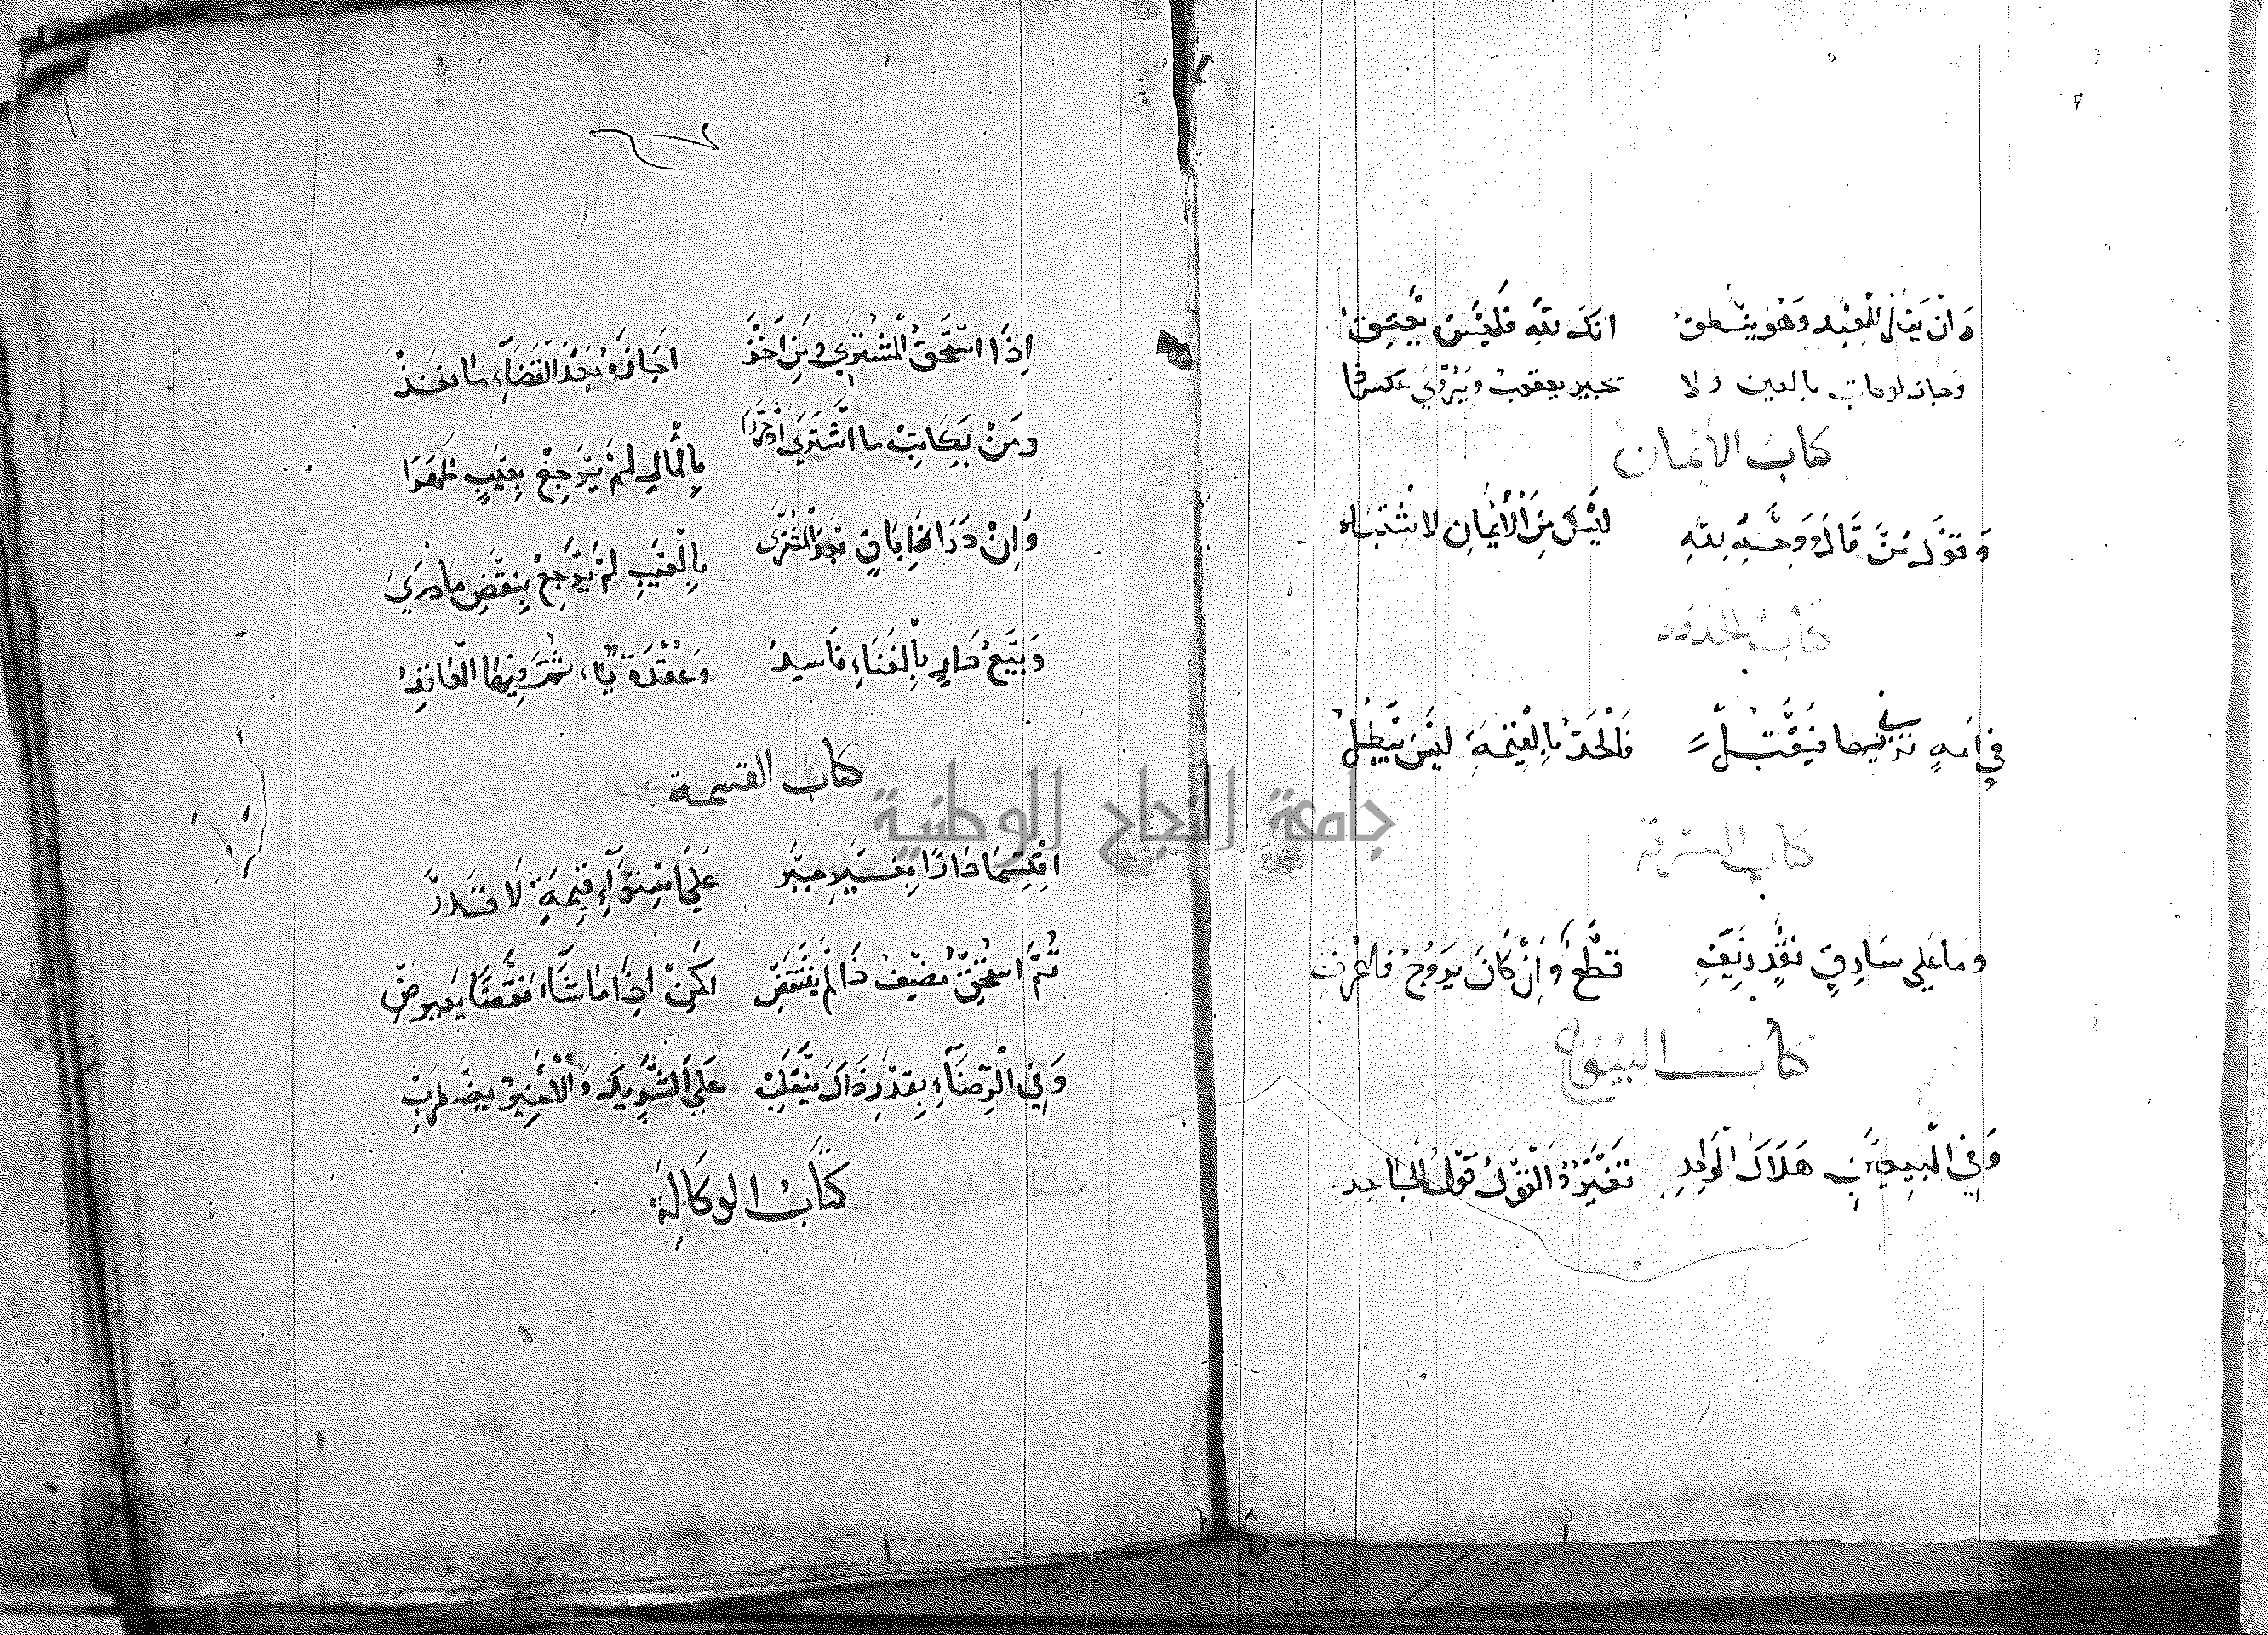 وَان يقل للعَبْد وَهو ينطق انك لله فليس يُعتق
وَجاز لو مات بالعين ولا يجيز يعقوب ويُروى عكس
كتاب الأيمان
وَقول مَن قَال وَوجهِ لله ليْسَ مِنَ الْأيمان لاشتباه
كتاب الحدود
في امَةٍ يزني فيها فيقتل فَالحَدّ بالْقِيْمة ليسَ يبْطلُ
كتاب السرقة
وما على سَارقٍ نقدٍ زيفِ قطْع وَإن كان يروج فاعرف
كتاب البيوع
وَفي المبيعين هَلَاك الْوَاحِدِ تغيّر وَالْقول قول الجاحد
إذَا استحق المشتري ومن أخذْ اجَازهُ بَعْدَ الْقَضَاء ما نفذْ
ومَنْ يكاتِبْ ما اشْتَرى أو حرّرا بِالْمالِ لمْ يَرجِعْ بِعَيبٍ ظهَرَا
وَإنْ دَرَا إباق بعد المشتري بِالْعَيبِ لم يرجع بنقض ما دري
وَبَيْعُ دَارٍ بِالْفَنَاءِ فَاسدُ وَعقْدة يا، ثمت فيها الْعَاقدُ
كتاب القسمة
اقتسما دَارًا بغَيرِ جبْر عَلَى استوَاءِ قِيمةٍ لَا قَدْر
ثُمَّ استحق نصْف ذَا لم ينتقض لكنْ إذا ما شَاءَ نقْضًا يعترض
وَفي الْرّضَاءِ بقدْر ذاكَ ينْقلِبْ عَلَى الشَّرِيك وَالْأخير يضطرِبْ
كتابُ الوكالة
جامعة النجاح الوطنية